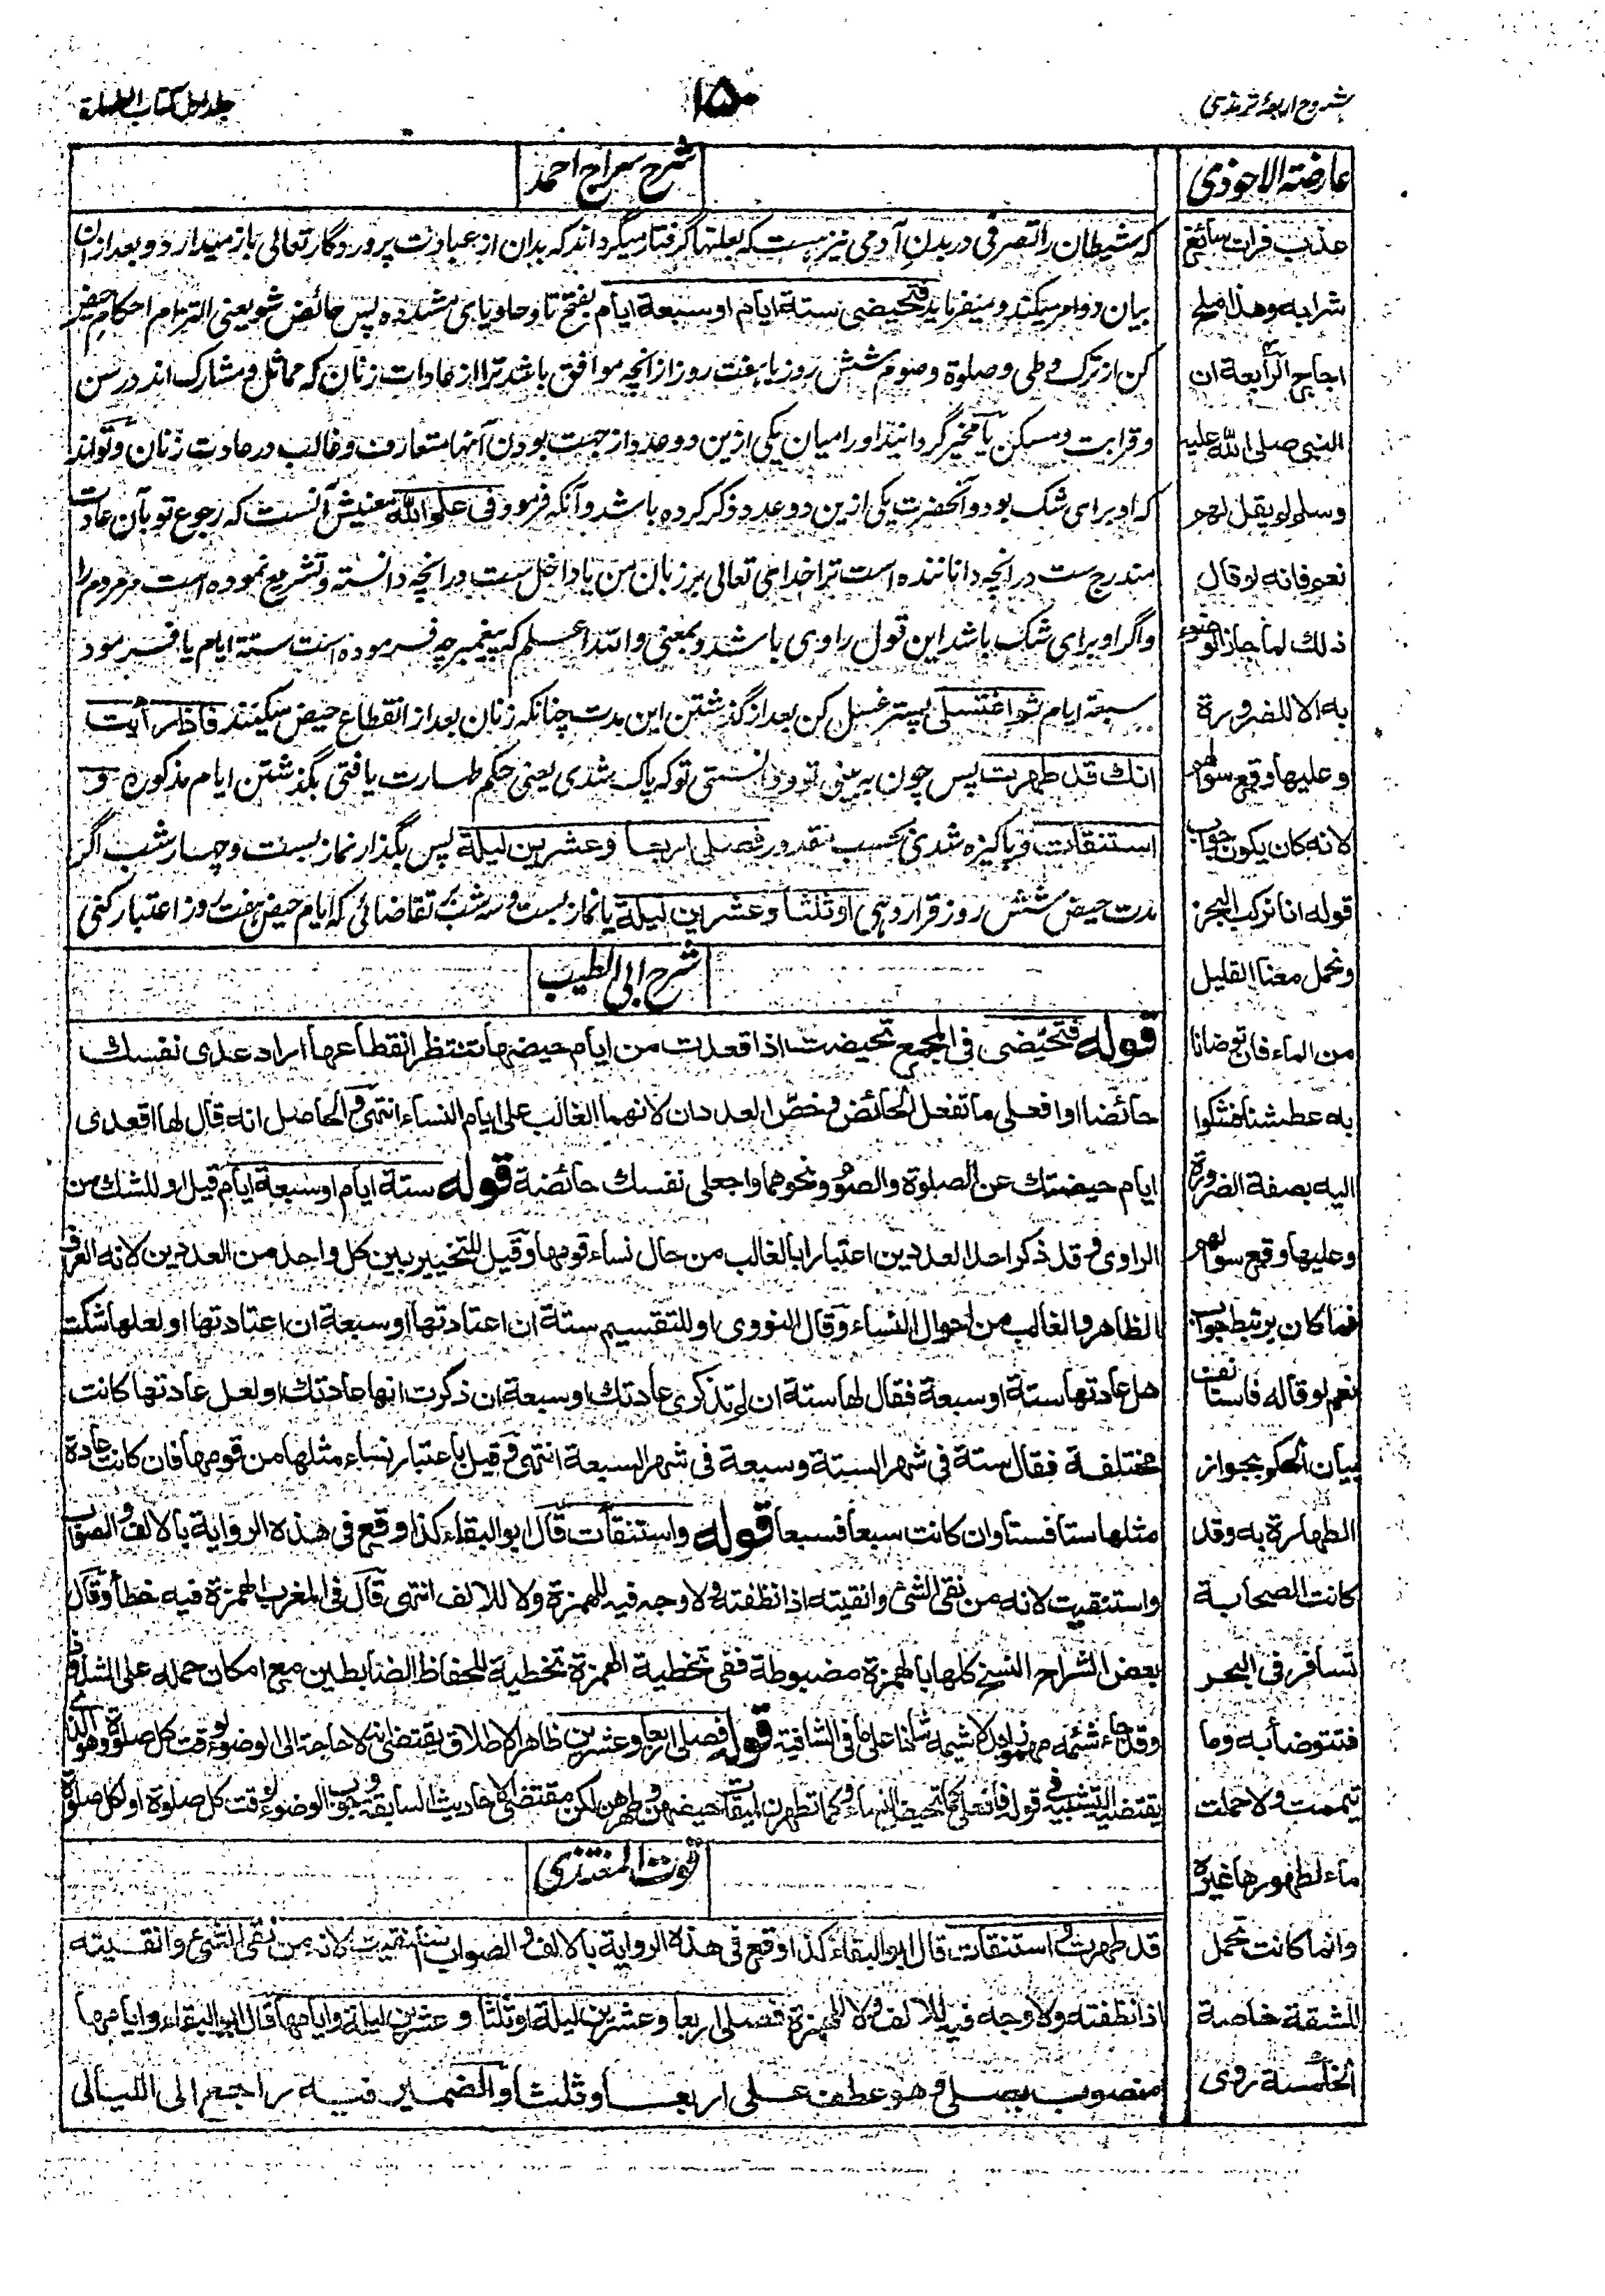 شروح اربعۂ ترمذی
۱۵۰
جلد اول کتاب الصلوة
عارضة الاحوذی
عذب فرات سائغ
شرابه وهذا ملح
اجاج الرابعة ان
النبی صلی الله علیه
وسلم لم یقل لهم
نعم فانه لو قال
ذلك لما جاز الوضوء
به الا للضرورة
وعلیها وقع سوالهم
لانه کان یکون جواب
قوله انا نرکب البحر
ونحمل معنا القلیل
من الماء فان توضانا
به عطشنا فشکوا
الیه بصفة الضرورة
وعلیها وقع سوالهم
فما کان یرتبط جواب
نعم لو قاله فاستانف
بیان الحکم بجواز
الطهارة به وقد
کانت الصحابة
تسافر فی البحر
فتتوضأ به وما
تیممت ولا حملت
ماء لطهورها غیره
وانما کانت تحمل
للشفة خاصة
الخامسة روی
شرح سراج احمد
که شیطان را تصرفی در بدن آدمی نیز هست که بعلتها گرفتار میگرداند که بدان از عبادت پروردگار تعالی باز میدارد و بعد ازان
بیان دو امر میکند و میفرماید فتحیضی ستة ایام او سبعة ایام بفتح تا و حا و یای مشدده پس حائض شو یعنی التزام احکام حیض
کن از ترک وطی و صلوة و صوم شش روز یا هفت روز از انچه موافق باشد ترا از عادات زنان که مماثل و مشارک اند در سن
و قرابت و مسکن یا مخیر گردانید او را میان یکی ازین دو عدد از جهت بودن آنها متعارف و غالب در عادت زنان و تواند
که او برای شک بود و آنحضرت یکی ازین دو عدد ذکر کرده باشد و آنکه فرمود فی علم الله معنیش آنست که رجوع تو بآن عادت
مندرج ست در انچه دانانده است ترا خدای تعالی بر زبان من یا داخل ست در انچه دانسته و تشریع نموده است مر مردم را
و اگر او برای شک باشد این قول راوی باشد و بمعنی والله اعلم که پیغمبر چه فرموده است ستة ایام یا فرمود
سبعة ایام ثم اغتسلی پستر غسل کن بعد از گذشتن این مدت چنانکه زنان بعد از انقطاع حیض میکنند فاذا رأیت
انك قد طهرت پس چون به بینی تو و دانستی تو که پاک شدی یعنی حکم طهارت یافتی بگذشتن ایام مذکوره و
استنقأت و پاکیزه شدی بحسب مقدور فصلی اربعا وعشرین لیلة پس بگذار نماز بست و چهار شب اگر
مدت حیض شش روز قرار دهی او ثلثا وعشرین لیلة یا نماز بست و سه شب تقاضائی که ایام حیض هفت روز اعتبار کنی
شرح ابی الطیب
قوله فتحیضی فی المجمع تحیضت اذا قعدت من ایام حیضها تنتظر انقطاعها اراد عدی نفسك
حائضا او افعلی ما تفعل الحائض وخص العددان لانهما الغالب علی ایام النساء انتهی والحاصل انه قال لها اقعدی
ایام حیضتك عن الصلوة والصوم ونحوهما واجعلی نفسك حائضة قوله ستة ایام او سبعة ایام قیل او للشك من
الراوی وقد ذکر احد العددین اعتبارا بالغالب من حال نساء قومها وقیل للتخییر بین کل واحد من العددین لانه العرف
الظاهر والغالب من احوال النساء وقال النووی او للتقسیم ستة ان اعتادتها او سبعة ان اعتادتها او لعلها شکت
هل عادتها ستة او سبعة فقال لها ستة ان لم تذکری عادتك او سبعة ان ذکرت انها عادتك او لعل عادتها کانت
مختلفة فقال ستة فی شهر الستة وسبعة فی شهر السبعة انتهی وقیل باعتبار نساء مثلها من قومها فان کانت عادة
مثلها ستا فستا وان کانت سبعا فسبعا قوله واستنقأت قال ابو البقاء کذا وقع فی هذه الروایة بالالف والصواب
واستنقیت لانه من نقی الشئ وانقیته اذا نظفته ولا وجه فیه للهمزة ولا للالف انتهی قال فی المغرب الهمزة فیه خطأ وقال
بعض الشراح النسخ کلها بالهمزة مضبوطة ففی تخطیة الهمزة تخطیة للحفاظ الضابطین مع امکان حمله علی الشذوذ
وقد جاء شئمة مهموزا بدلا لشیمة شاذا علی ما فی الشافیة قوله فصلی اربعا وعشرین ظاهر الاطلاق یقتضی انه لا حاجة الی الوضوء لوقت کل صلوة وهو الذی
یقتضیه التشبیه فی قوله فافعلی کما تحیض النساء وکما تطهرن لمیقات حیضهن وطهرهن لکن مقتضی الاحادیث السابقة وجوب الوضوء لوقت کل صلوة او لکل صلوة
قوت المغتذی
قد طهرت واستنقأت قال ابو البقاء کذا وقع فی هذه الروایة بالالف والصواب استنقیت لانه من نقی الشئ وانقیته
اذا نظفته ولا وجه فیه للالف ولا للهمزة فصلی اربعا وعشرین لیلة او ثلثا وعشرین لیلة وایامها قال ابو البقاء وایامها
منصوب بصلی وهو عطف علی اربعا وثلثا والضمیر فیه راجع الی اللیالی